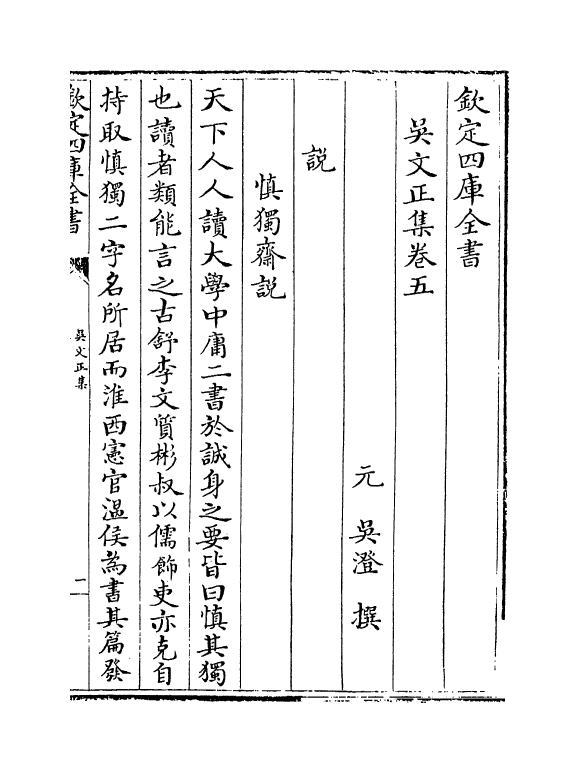 欽定四庫全書
吳文正集卷五
元 吳澄 撰
說
慎獨齋說
天下人人讀大學中庸二書於誠身之要皆曰慎其獨
也讀者類能言之古舒李文質彬叔以儒飾吏亦克自
持取慎獨二字名所居而淮西憲官溫侯為書其篇發
欽定四庫全書
吳文正集
二